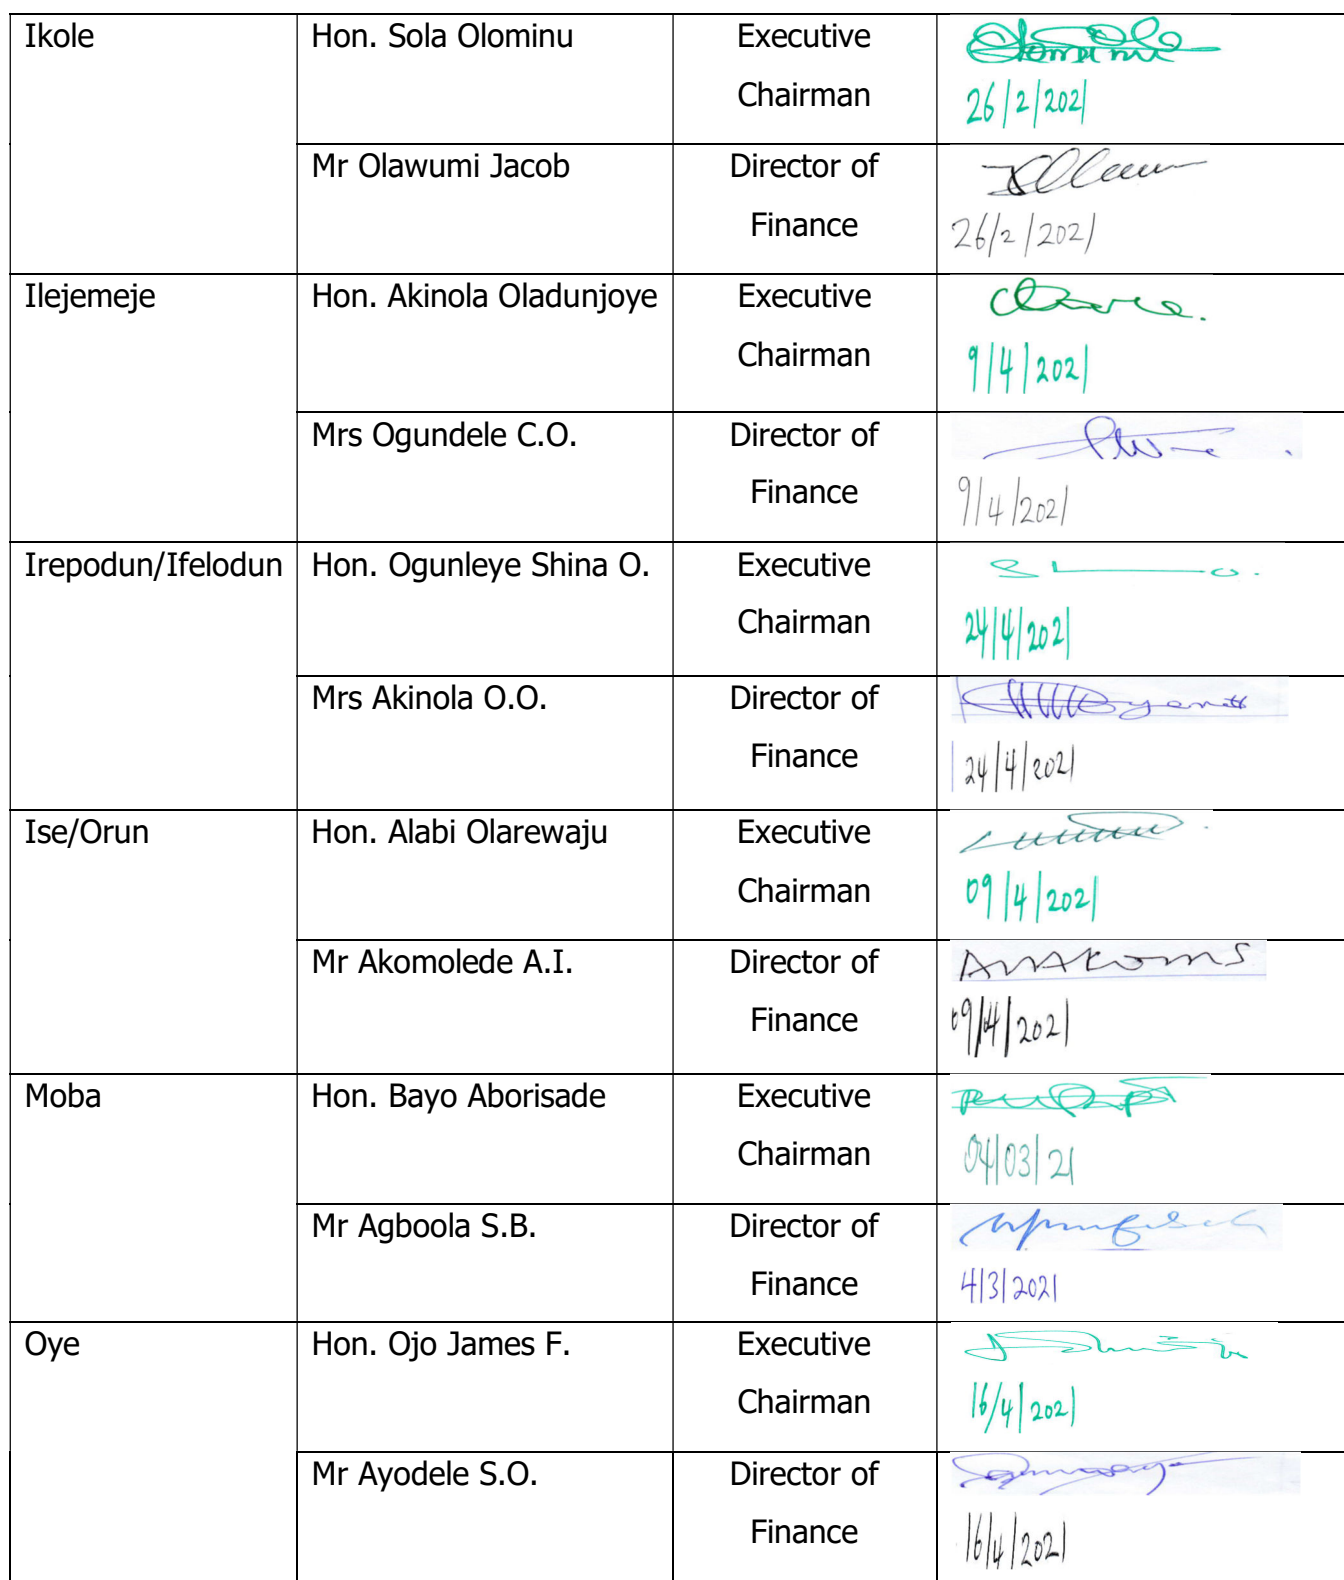 Ikole Hon. Sola Olominu Executive
Chairman
26/2/2021
Mr Olawumi Jacob Director of
Finance
26/2/2021
Ilejemeje Hon. Akinola Oladunjoye Executive
Chairman
9/4/2021
Mrs Ogundele C.O. Director of
Finance
9/4/2021
Irepodun/Ifelodun Hon. Ogunleye Shina O. Executive
Chairman
24/4/2021
Mrs Akinola O.O. Director of
Finance
24/4/2021
Ise/Orun Hon. Alabi Olarewaju Executive
Chairman
09/4/2021
Mr Akomolede A.I. Director of
Finance
09/04/2021
Moba Hon. Bayo Aborisade Executive
Chairman
04/03/21
Mr Agboola S.B. Director of
Finance
4/3/2021
Oye Hon. Ojo James F. Executive
Chairman
16/4/2021
Mr Ayodele S.O. Director of
Finance
16/4/2021